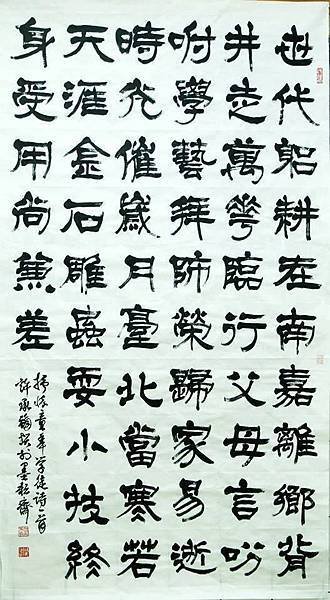 世代躬耕在南嘉離鄉背
井走萬華臨行父母言吩
咐學藝拜師榮歸家易逝
時光催歲月臺北當寒若
天涯金石雕蟲耍小技終
身受用尚無差
抒懷童年学徒诗一首
許